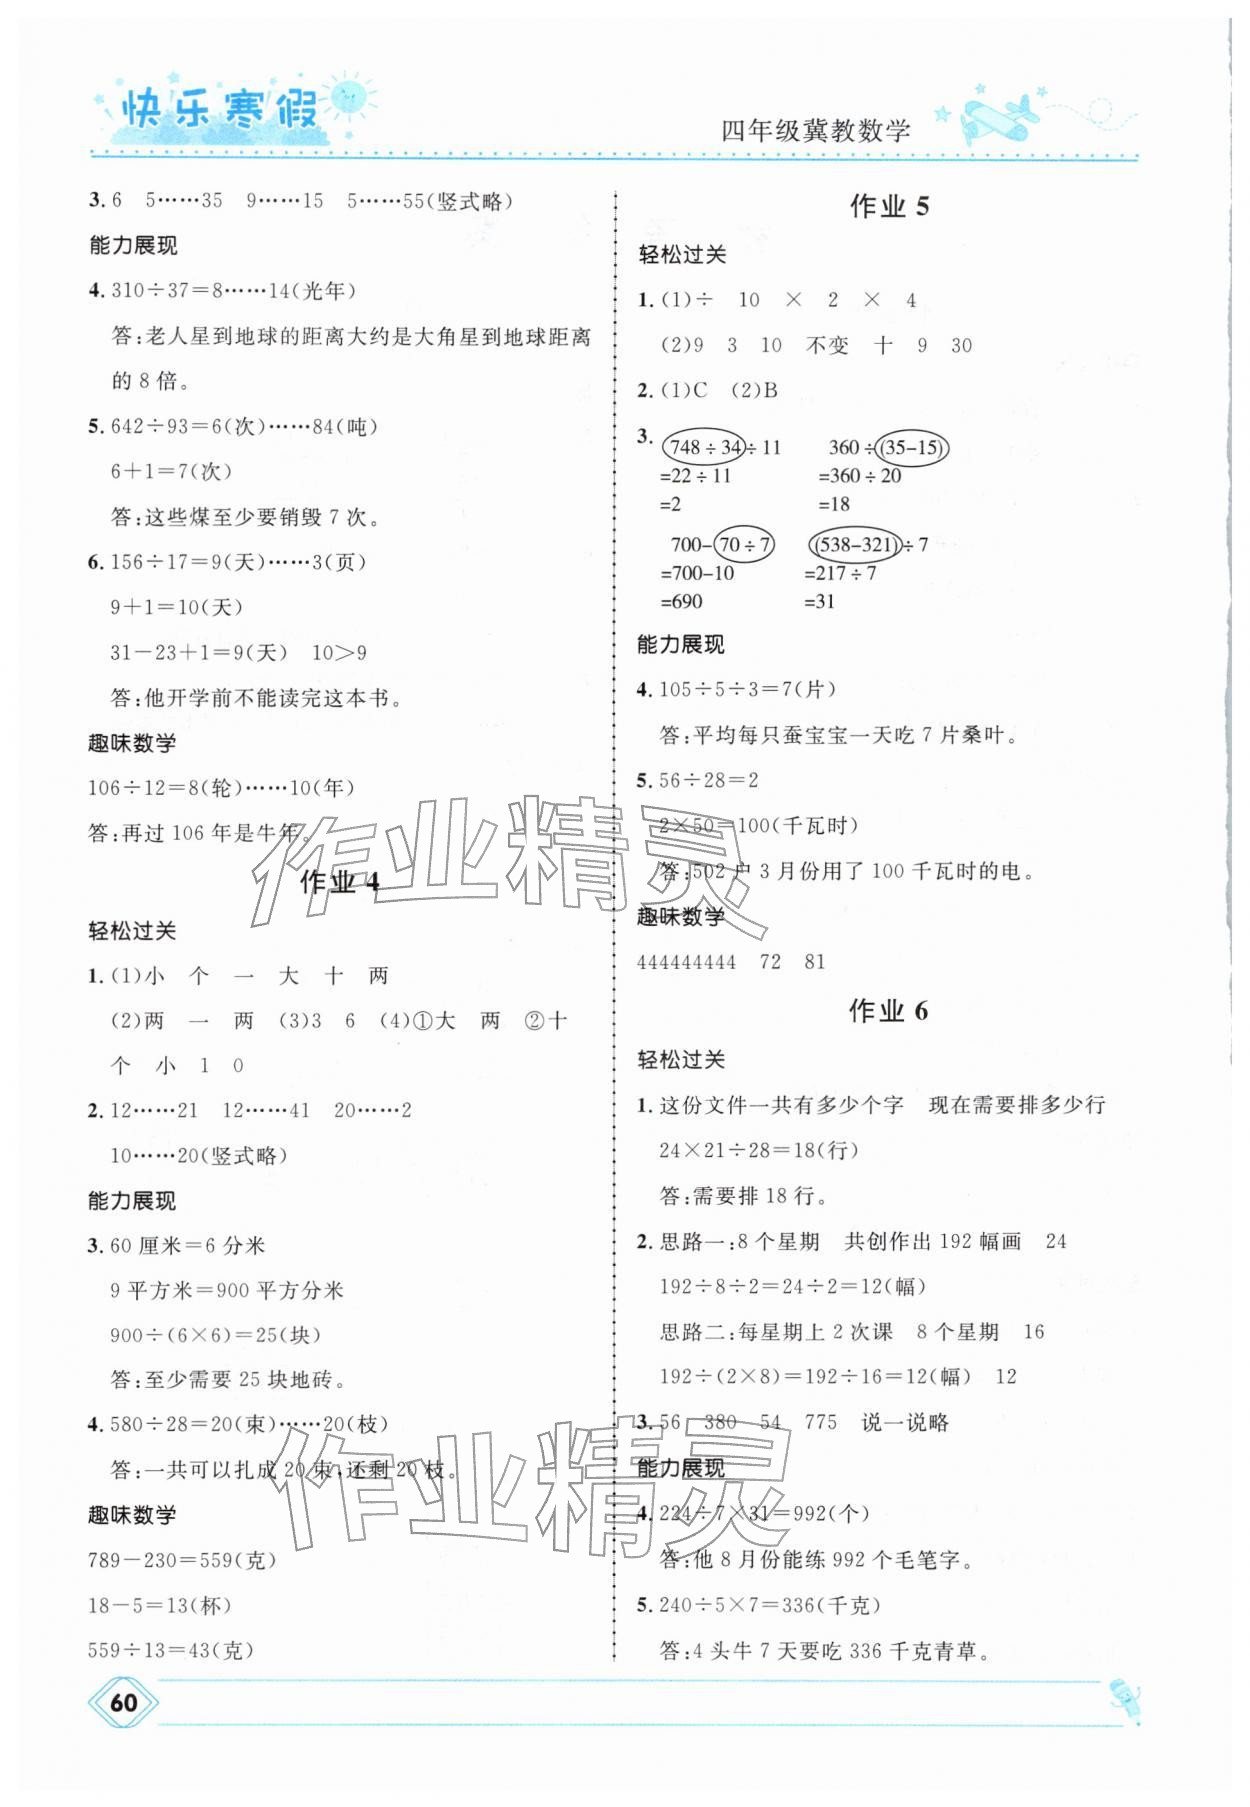 快乐寒假
四年级冀教数学
3. 6　5……35　9……15　5……55(竖式略)
能力展现
4. 310÷37=8……14(光年)
答:老人星到地球的距离大约是大角星到地球距离
的 8 倍。
5. 642÷93=6(次)……84(吨)
6+1=7(次)
答:这些煤至少要销毁 7 次。
6. 156÷17=9(天)……3(页)
9+1=10(天)
31-23+1=9(天)　10>9
答:他开学前不能读完这本书。
趣味数学
106÷12=8(轮)……10(年)
答:再过 106 年是牛年。
作业 4
轻松过关
1. (1)小　个　一　大　十　两
(2)两　一　两　(3)3　6　(4)①大　两　②十
个　小　1　0
2. 12……21　12……41　20……2
10……20(竖式略)
能力展现
3. 60 厘米=6 分米
9 平方米=900 平方分米
900÷(6×6)=25(块)
答:至少需要 25 块地砖。
4. 580÷28=20(束)……20(枝)
答:一共可以扎成 20 束,还剩 20 枝。
趣味数学
789-230=559(克)
18-5=13(杯)
559÷13=43(克)
作业 5
轻松过关
1. (1)÷　10　×　2　×　4
(2)9　3　10　不变　十　9　30
2. (1)C　(2)B
3. 748÷34÷11　360÷(35-15)
=22÷11　=360÷20
=2　=18
700-70÷7　(538-321)÷7
=700-10　=217÷7
=690　=31
能力展现
4. 105÷5÷3=7(片)
答:平均每只蚕宝宝一天吃 7 片桑叶。
5. 56÷28=2
2×50=100(千瓦时)
答:502 户 3 月份用了 100 千瓦时的电。
趣味数学
444444444　72　81
作业 6
轻松过关
1. 这份文件一共有多少个字　现在需要排多少行
24×21÷28=18(行)
答:需要排 18 行。
2. 思路一:8 个星期　共创作出 192 幅画　24
192÷8÷2=24÷2=12(幅)
思路二:每星期上 2 次课　8 个星期　16
192÷(2×8)=192÷16=12(幅)　12
3. 56　380　54　775　说一说略
能力展现
4. 224÷7×31=992(个)
答:他 8 月份能练 992 个毛笔字。
5. 240÷5×7=336(千克)
答:4 头牛 7 天要吃 336 千克青草。
60
作业精灵
作业精灵